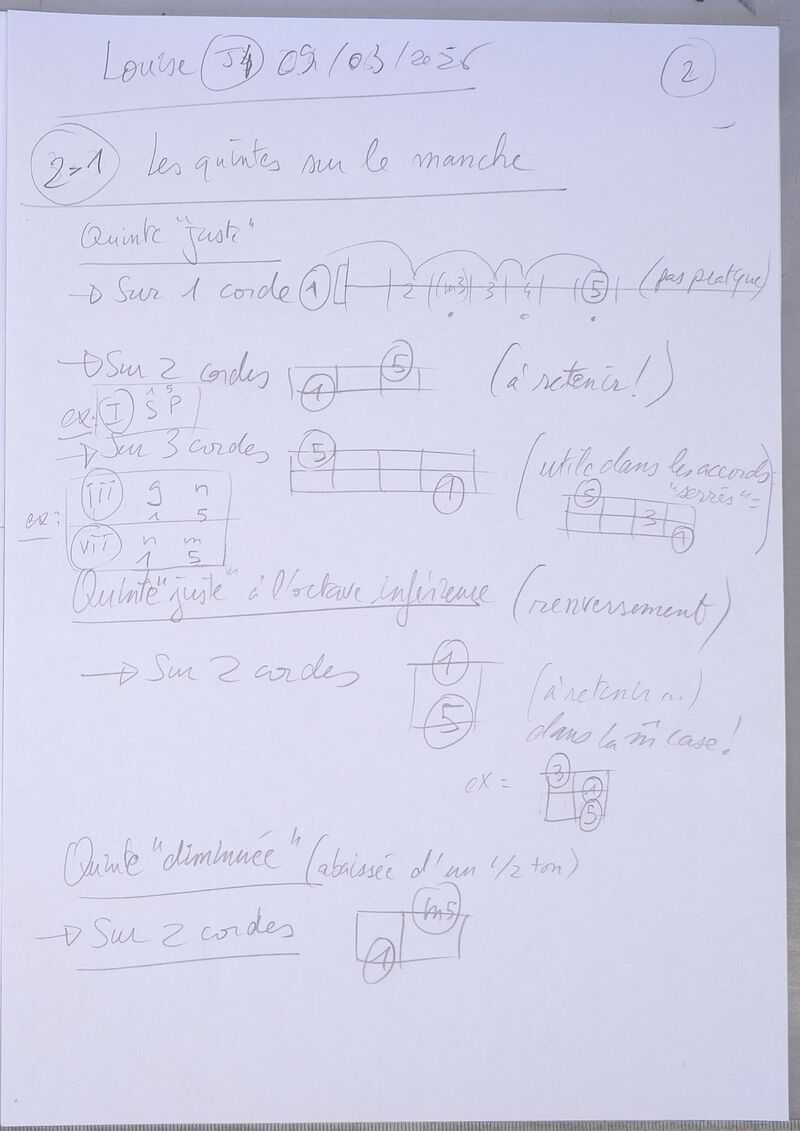 Louise J4 09/03/2026
2
2-1 Les quintes sur le manche
Quinte "juste"
→ Sur 1 corde 1 2 (m3) 3 4 5 (pas pratique)
→ Sur 2 cordes 1 5 (à retenir!)
ex: I S P
1 5
→ Sur 3 cordes 5 1 (utile dans les accords
"serrés"=
5 3 1)
ex: iii g n
1 5
vii n m
1 5
Quinte "juste" à l'octave inférieure (renversement)
→ Sur 2 cordes 1 5 (à retenir ...)
dans la m̄ case!
ex = 3 1 5
Quinte "diminuée" (abaissée d'un 1/2 ton)
→ Sur 2 cordes 1 m5